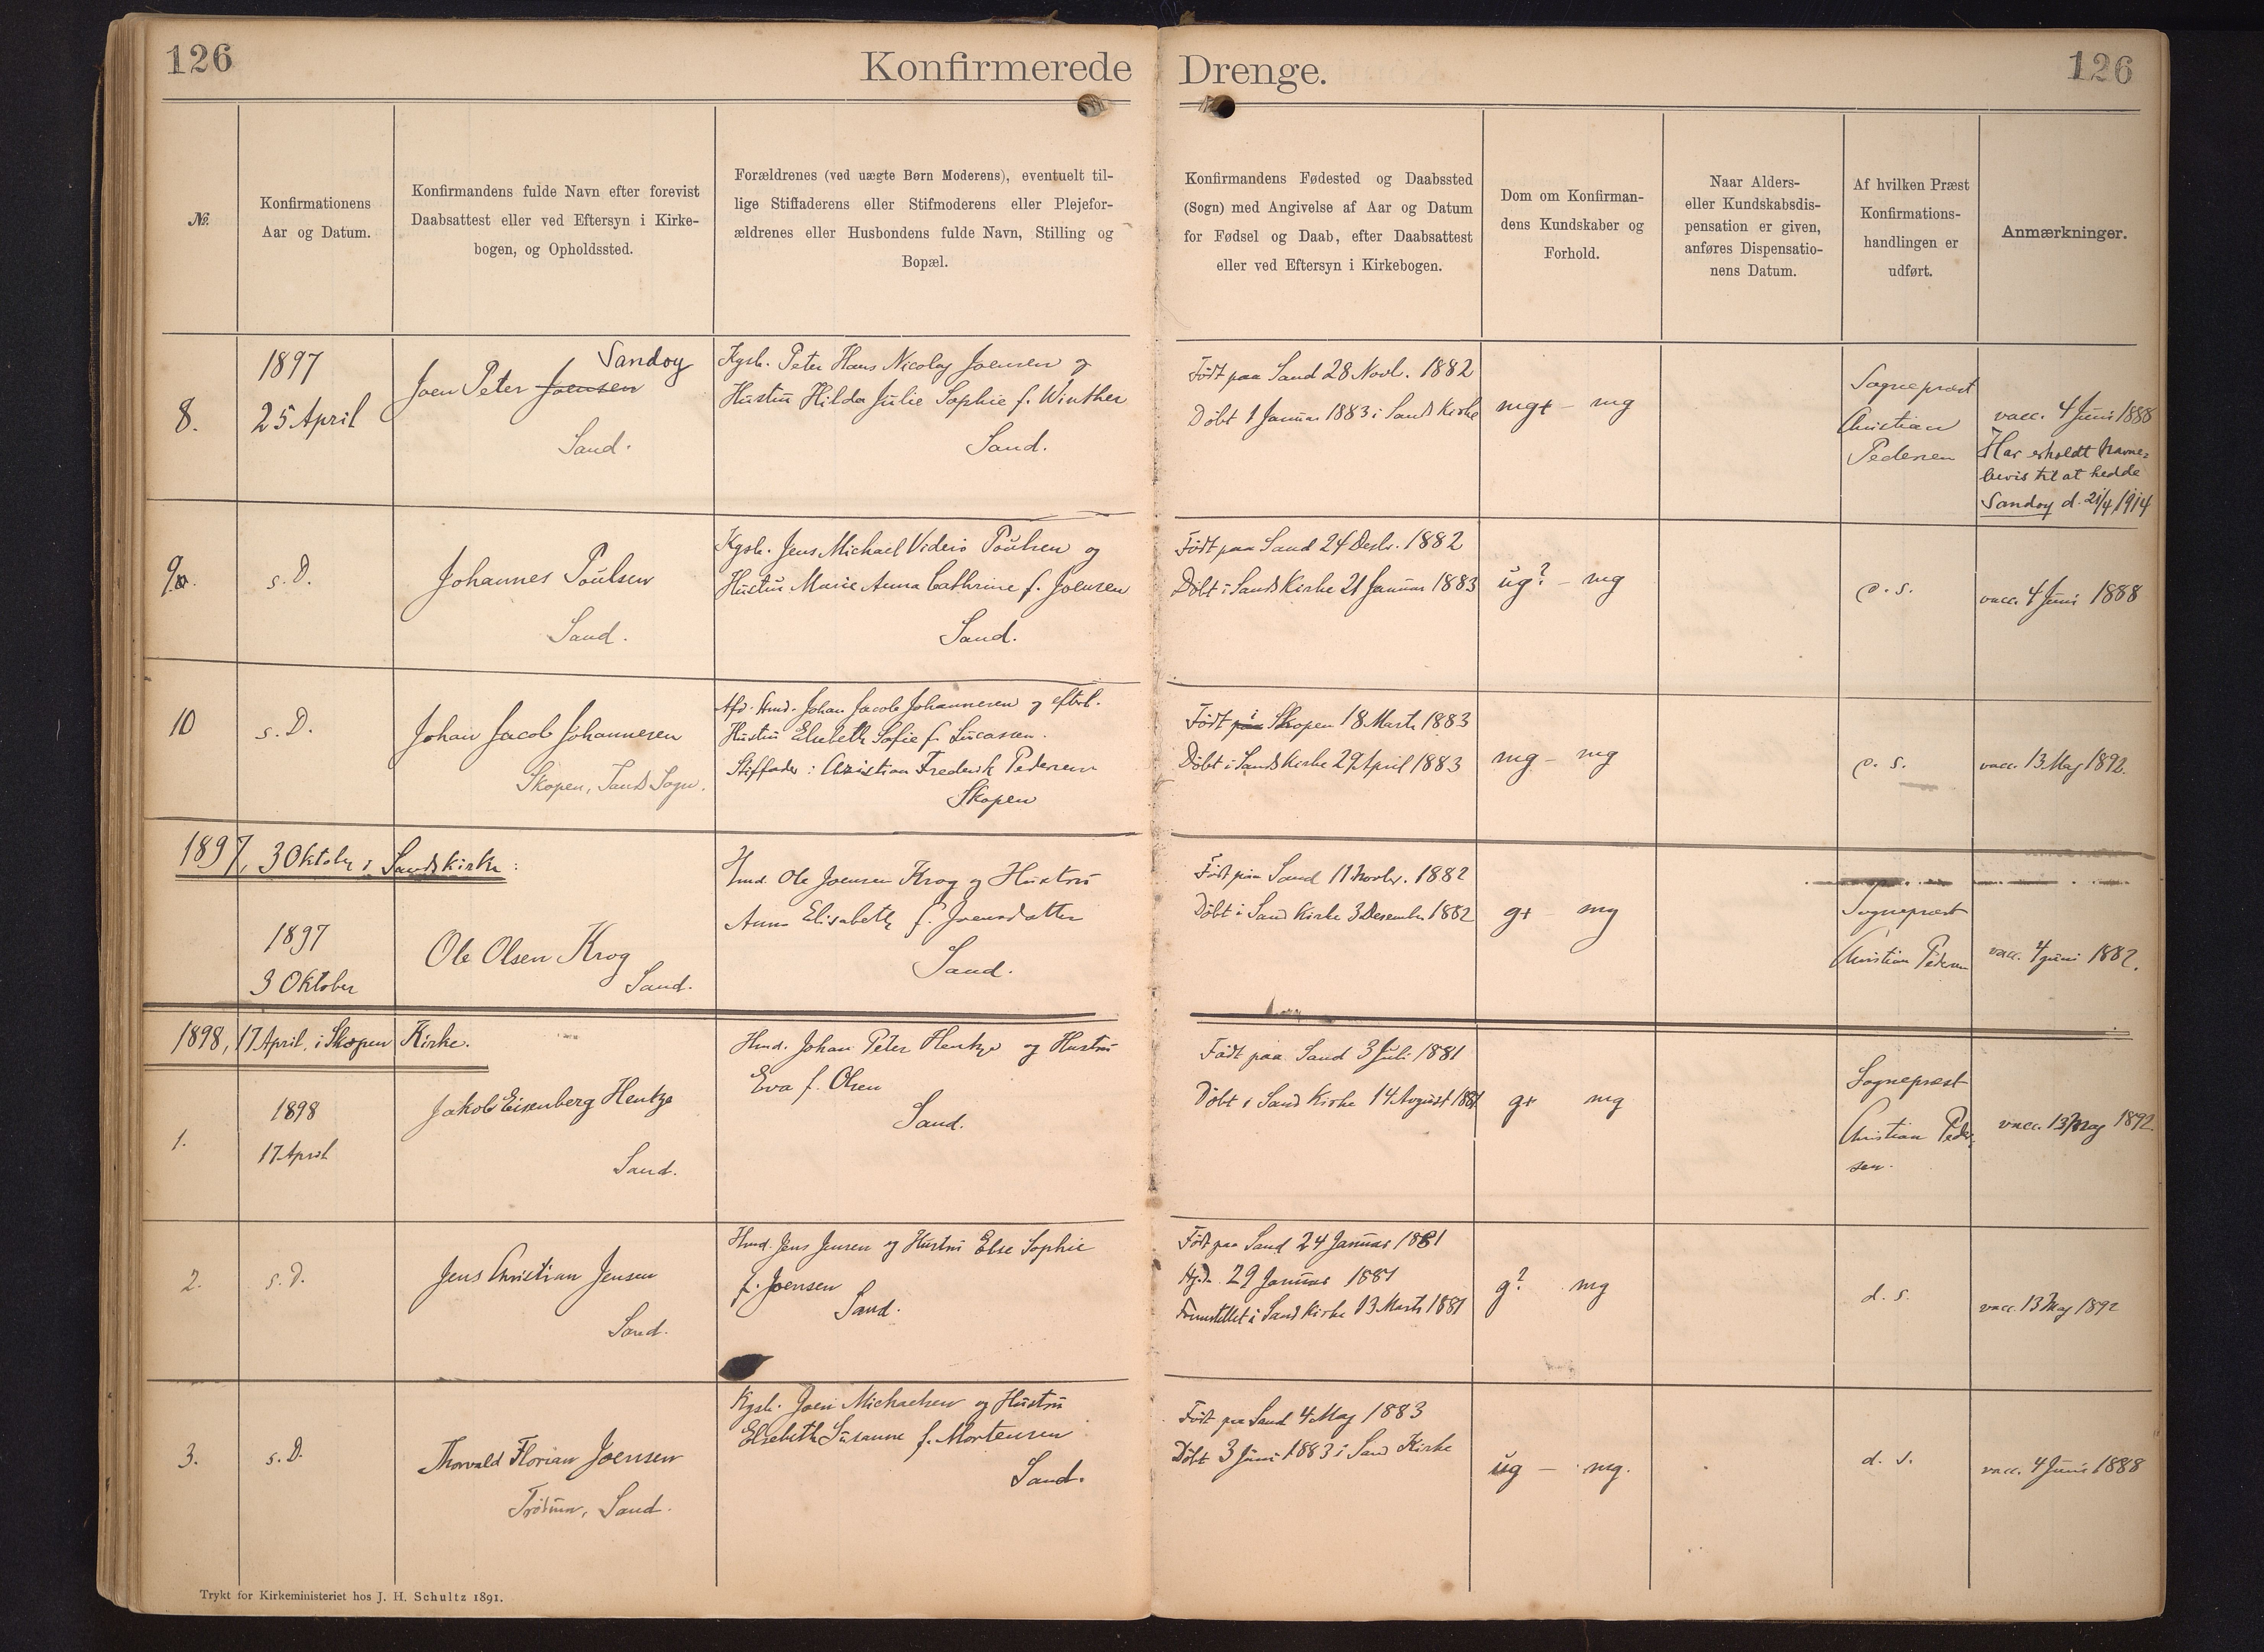 126
Konfirmerede Drenge.
126
№.
Konfirmationens
Aar og Datum.
Konfirmandens fulde Navn efter forevist
Daabsattest eller ved Eftersyn i Kirke-
bogen, og Opholdssted.
Forældrenes (ved uægte Børn Moderens), eventuelt til-
lige Stiffaderens eller Stifmoderens eller Plejefor-
ældrenes eller Husbondens fulde Navn, Stilling og
Bopæl.
Konfirmandens Fødested og Daabssted
(Sogn) med Angivelse af Aar og Datum
for Fødsel og Daab, efter Daabsattest
eller ved Eftersyn i Kirkebogen.
Dom om Konfirman-
dens Kundskaber og
Forhold.
Naar Alders-
eller Kundskabsdis-
pensation er given,
anføres Dispensatio-
nens Datum.
Af hvilken Præst
Konfirmations-
handlingen er
udført.
Anmærkninger.
8.
1897
25 April
Sandoy
Joen Peter Joensen
Sand.
Kgsb. Peter Hans Nicolay Joensen og
Hustru Hilda Julie Sophie f. Winther
Sand.
Født paa Sand 28 Novb. 1882
Døbt 1 Januar 1883 i Sands Kirke
mg+ – mg
Sognepræst
Christian
Pedersen
vacc. 4 Juni 1888
Har erholdt Navne-
bevis til at hedde
Sandoy d. 21/4 1914
9.
s. D.
Johannes Poulsen
Sand.
Kgsb. Jens Michael Viderö Poulsen og
Hustru Marie Anna Cathrine f. Joensen
Sand.
Født paa Sand 24 Desbr. 1882
Døbt i Sands Kirke 21 Januar 1883
ug? – mg
d. s.
vacc. 4 Juni 1888
10
s. D.
Johan Jacob Johannesen
Skopen, Sands Sogn.
Afd. Hmd. Johan Jacob Johannesen og efterl.
Hustru Elsebeth Sofie f. Lucassen.
Stiffader: Christian Frederik Pedersen
Skopen
Født paa i Skopen 18 Marts 1883
Døbt i Sands Kirke 29 April 1883
mg – mg
d. s.
vacc. 13 Maj 1892.
1897, 3 Oktober i Sands kirke:
1897
3 Oktober
Ole Olsen Krog
Sand.
Hmd. Ole Joensen Krog og Hustru
Anna Elisabeth f. Joensdatter
Sand.
Født paa Sand 11 Novbr. 1882
Døbt i Sand Kirke 3 Desember 1882
g+ mg
Sognepræst
Christian Pedersen
vacc. 4 juni 1882.
1898, 17 April. i Skopen Kirke.
1.
1898
17 April
Jakob Eisenberg Hentze
Sand.
Hmd. Johan Peter Hentze og Hustru
Eva f. Olsen
Sand.
Født paa Sand 3 Juli 1881
Døbt i Sand Kirke 14 August 1881
g+ mg
Sognepræst
Christian Peder-
sen.
vacc. 13 Maj 1892
2.
s. D.
Jens Christian Jensen
Sand.
Hmd. Jens Jensen og Hustru Else Sophie
f. Joensen
Sand.
Født paa Sand 24 Januar 1881
Hjd. 29 Januar 1881
Fremstillet i Sand Kirke 13 Marts 1881
g? mg
d. s.
vacc. 13 Maj 1892
3.
s. D.
Thorvald Florian Joensen
Trödum, Sand.
Kgsb. Joen Michaelsen og Hustru
Elsebeth Susanne f. Mortensen
Sand.
Født paa Sand 4 Maj 1883
Døbt 3 Juni 1883 i Sand Kirke
ug – mg.
d. s.
vacc. 4 Juni 1888
Trykt for Kirkeministeriet hos J. H. Schultz 1891.